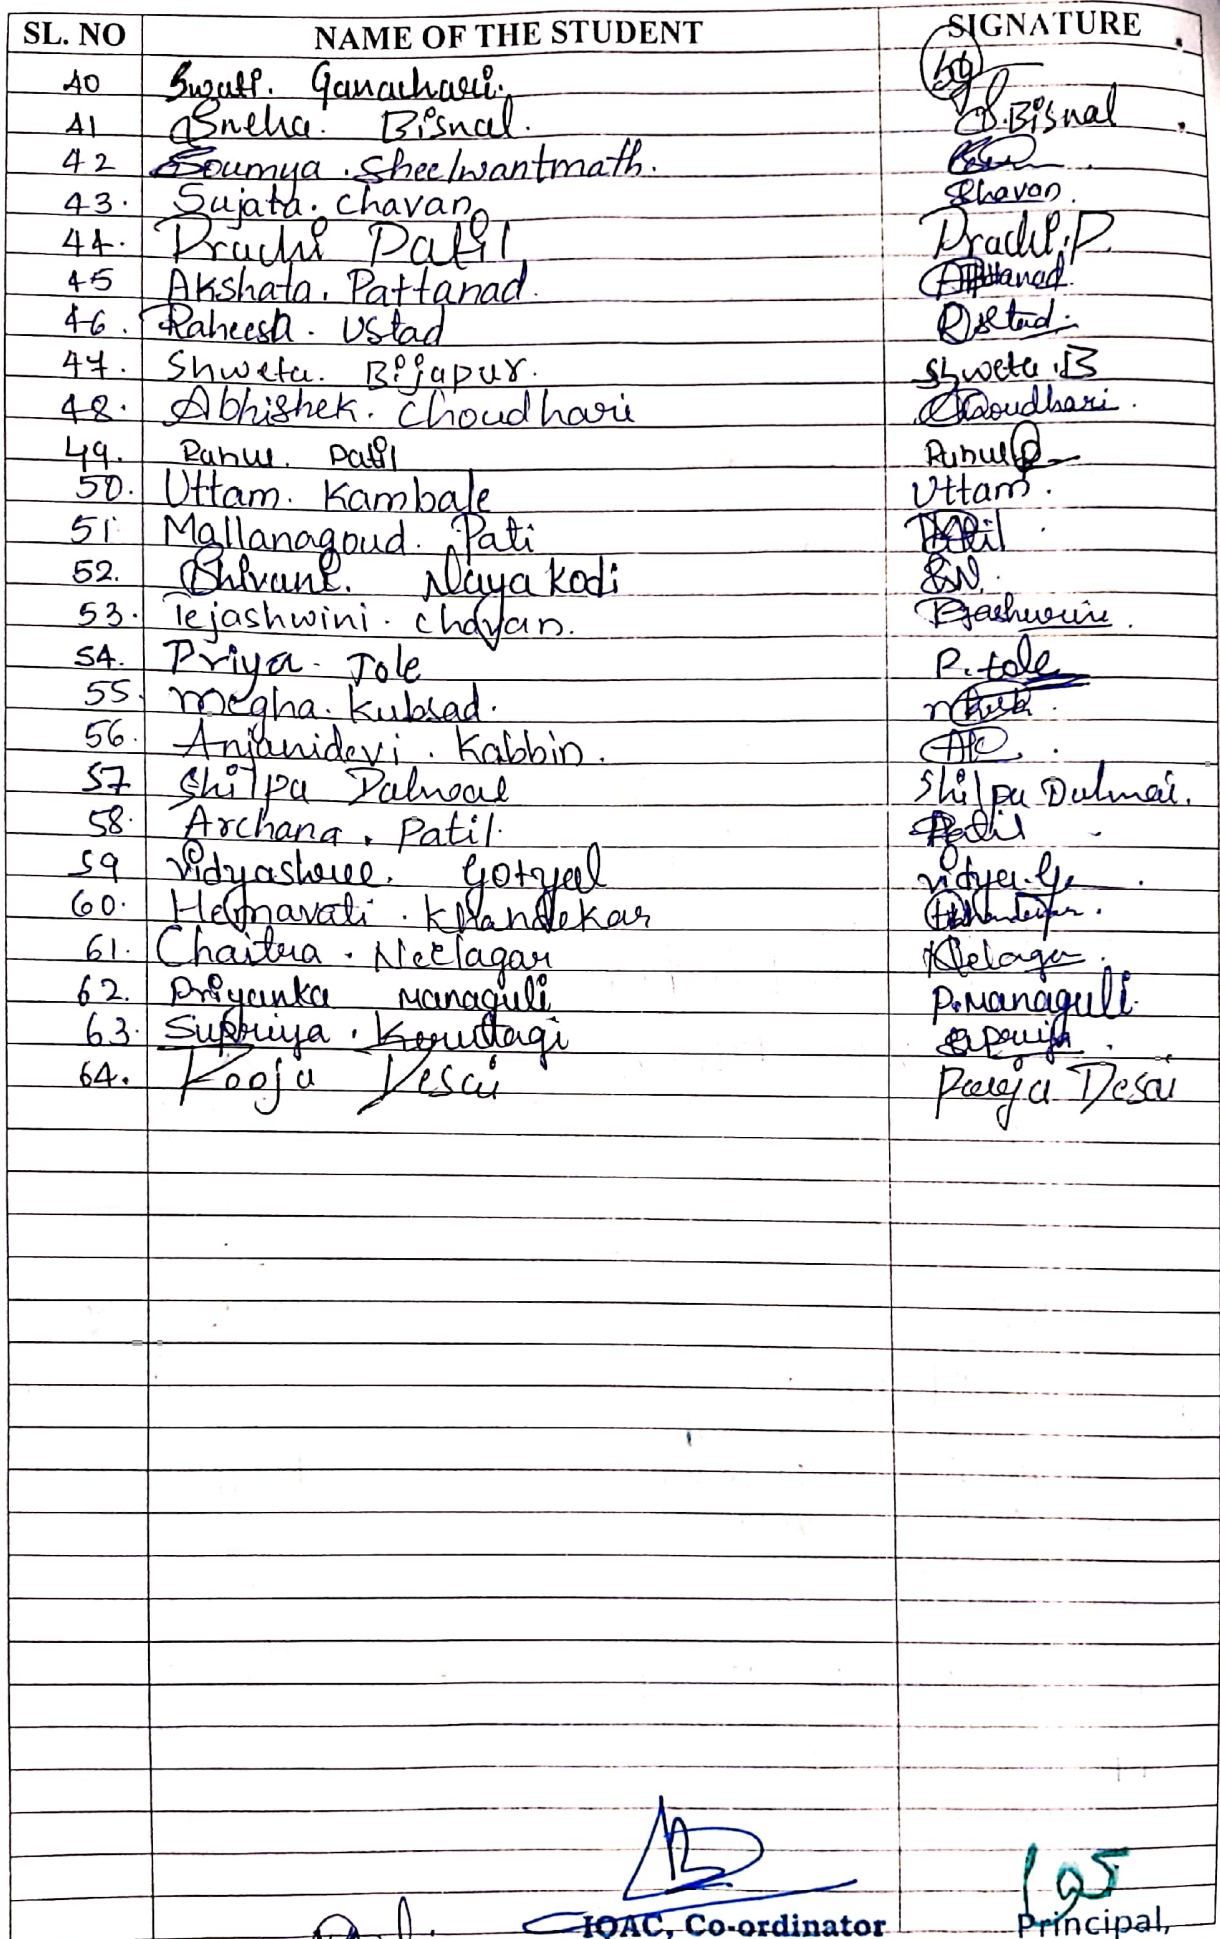 SL. NO NAME OF THE STUDENT SIGNATURE
40 Swati. Ganachari.
41 Sneha. Bisnal. S.Bisnal
42 Soumya. Sheelwantmath.
43. Sujata. Chavan Chavan.
44. Prachi Patil Prachi.P
45 Akshata. Pattanad. Pattanad.
46. Raheesa. Ustad Ustad.
47. Shweta. Bijapur. Shweta.B
48. Abhishek. Choudhari Choudhari.
49. Patil
50. Uttam. Kambale Uttam.
51 Mallanagoud. Pati Patil
52. Shivani. Nayakodi S.N.
53. Tejashwini. Chavan. Tejashwini.
54. Priya. Tole P. tole
55. Megha. Kubsad.
56. Anjanidevi. Kabbin.
57 Shilpa Dalmai.
58. Archana. Patil. Patil
59 Vidyashree. Gotyal Vidya.G.
60. Hemavati. Khandekar
61. Chaitra. Neelagar
62. Priyanka Managuli P.Managuli.
63. Supriya.
64. Pooja Desai Pooja Desai
IQAC, Co-ordinator Principal,